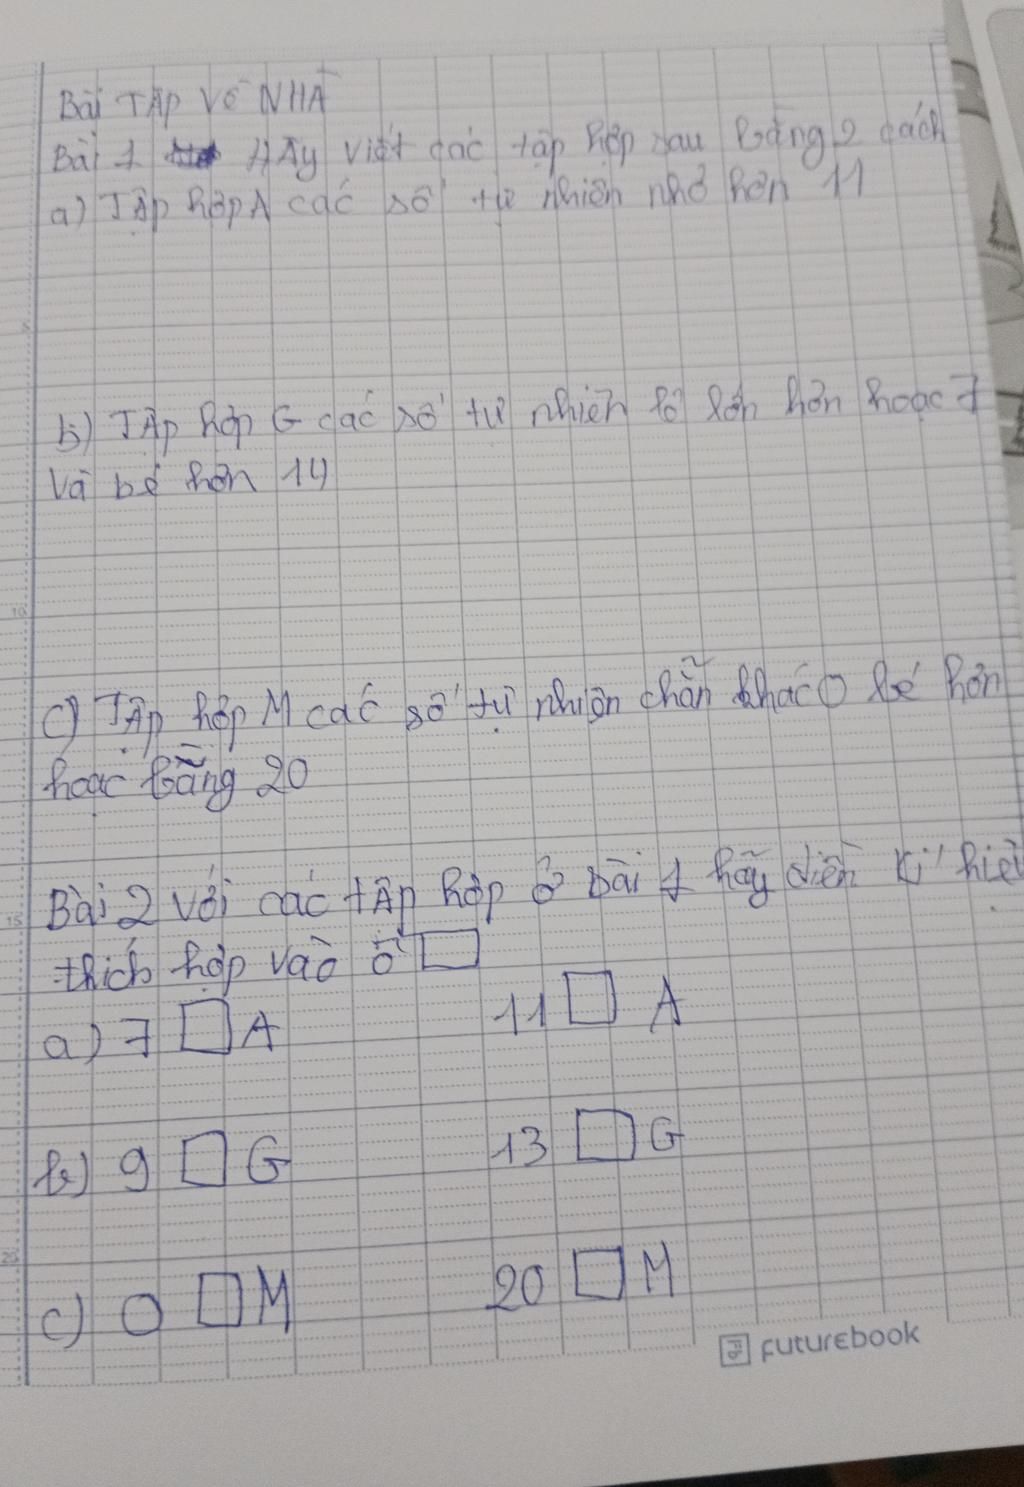 Bài TẬP VỀ NHÀ
Bài 1 HÃy viết các tập hợp sau bằng 2 cách
a) TẬp hợp A các số tự nhiên nhỏ hơn 11
b) TẬp hợp G các số tự nhiên lớn hơn hoặc 7
Và bé hơn 14
c) TẬp hợp M các số tự nhiên chẵn khác 0 bé hơn
hoặc bằng 20
Bài 2 Với các tẬp hợp ở bài 1 hãy điền kí hiệu
thích hợp vào ô □
a) 7 □ A 11 □ A
b) 9 □ G 13 □ G
c) 0 □ M 20 □ M
FUTUREBOOK